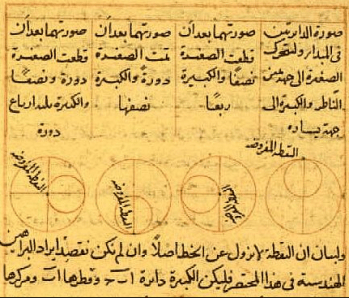 صورة الدايرتين
فى المبدا وليتحرك
الصغيرة الى جهة يمين
الناظر والكبيرة الى
جهة يساره
صورتهما بعد أن
قطعت الصغيرة
نصفًا والكبيرة
ربعًا
صورتهما بعد أن
تمت الصغيرة
دورة والكبيرة
نصفها
صورتهما بعد أن
قطعت الصغيرة
دورة ونصفًا
والكبيرة ثلثة ارباع
دورة
النقطة المفروضة
النقطة المفروضة
النقطة المفروضة
النقطة المفروضة
ولبيان ان النقطة لا تزول عن الخط اصلا وان لم نكن نقصد ايراد البراهين
الهندسية فى هذا المختصر فليكن الكبيرة دائرة اب وقطرها اب ومركزها